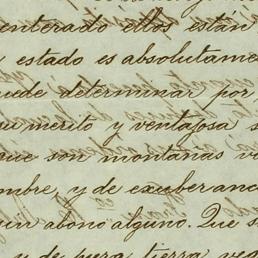 enterado ellos están
estado es absolutame
uede determinar por
su merito y ventajosa s
que son montañas va
ombre, y de exuberanc
un abono alguno. Que s
y de pura tierra veg